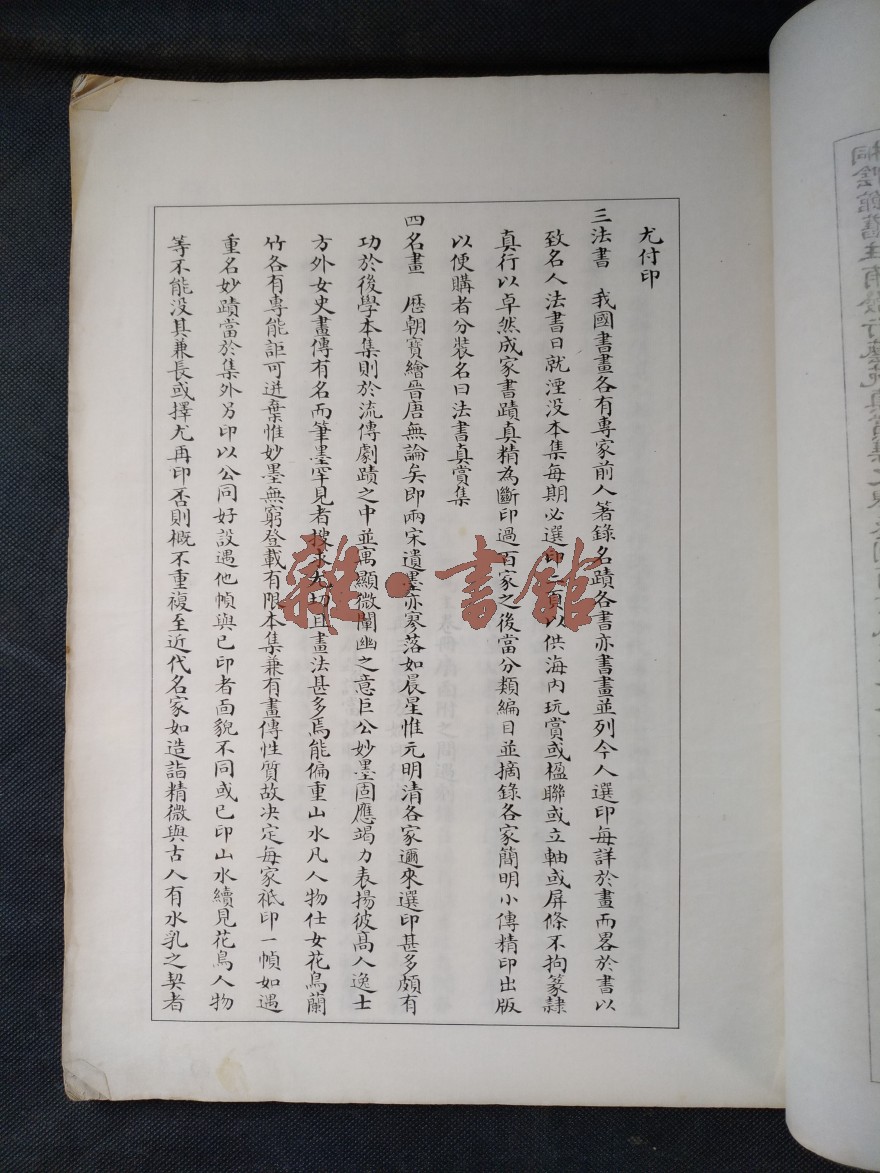 尤付印
三法書　我國書畫各有專家前人著錄名蹟各書亦書畫並列今人選印每詳於畫而畧於書以
致名人法書日就湮没本集每期必選印二頁以供海内玩賞或楹聯或立軸或屏條不拘篆隸
真行以卓然成家書蹟真精為斷印過百家之後當分類編目並摘錄各家簡明小傳精印出版
以便購者分裝名曰法書真賞集
四名畫　歷朝寶繪晉唐無論矣即兩宋遺墨亦寥落如晨星惟元明清各家邇來選印甚多頗有
功於後學本集則於流傳劇蹟之中並寓顯微闡幽之意巨公妙墨固應竭力表揚彼高人逸士
方外女史畫傳有名而筆墨罕見者搜求尤切且畫法甚多焉能偏重山水凡人物仕女花鳥蘭
竹各有專能詎可迸棄惟妙墨無窮登載有限本集兼有畫傳性質故决定每家祇印一幀如遇
重名妙蹟當於集外另印以公同好設遇他幀與已印者面貌不同或已印山水續見花鳥人物
等不能没其兼長或擇尤再印否則概不重複至近代名家如造詣精微與古人有水乳之契者
雜·書館